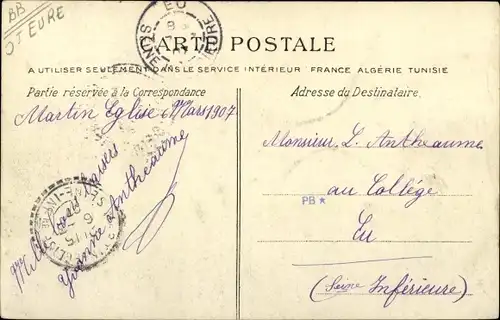 BB
ST EURE
EU
CARTE POSTALE
A UTILISER SEULEMENT DANS LE SERVICE INTÉRIEUR FRANCE ALGÉRIE TUNISIE
Partie réservée à la Correspondance
Adresse du Destinataire.
Martin Eglise 6 Mars 1907
Mille baisers
Yvonne Antheaume
Monsieur L. Antheaume
au Collège
PB ★
Eu
(Seine Inférieure)